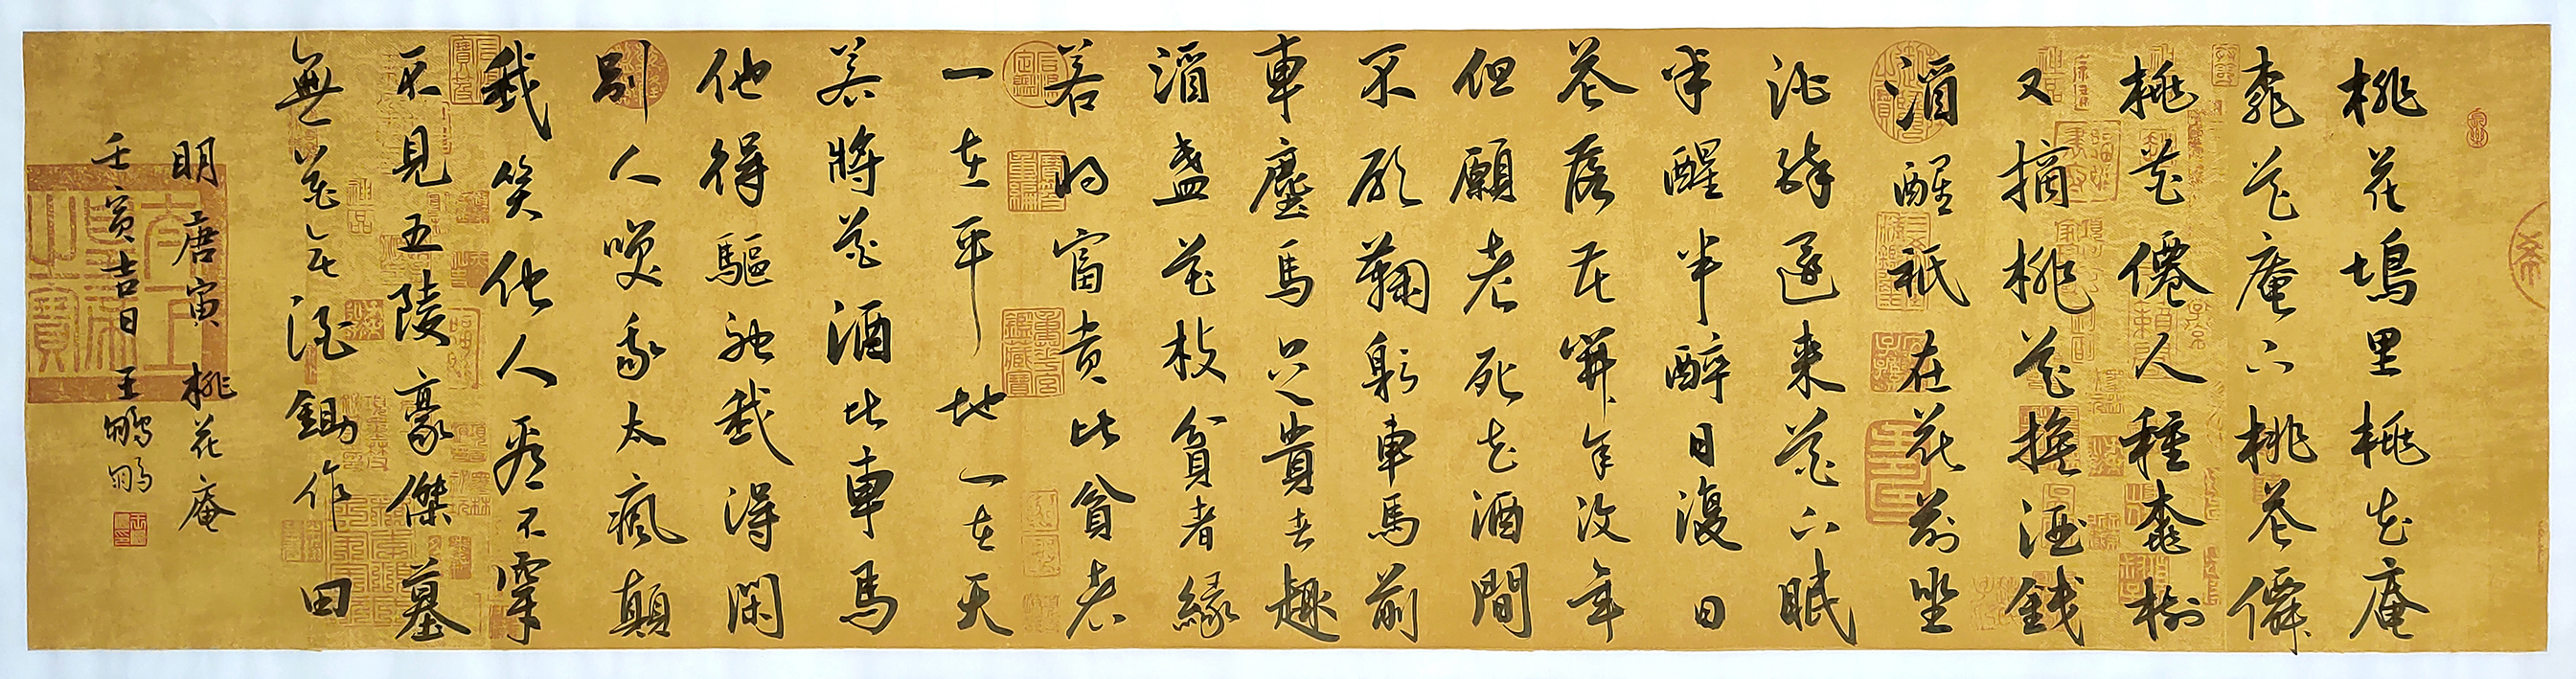 桃花塢里桃花庵
桃花庵下桃花僊
桃花僊人種桃樹
又摘桃花換酒錢
酒醒祇在花前坐
酒醉還來花下眠
半醒半醉日復日
花落花開年復年
但願老死花酒間
不願鞠躬車馬前
車塵馬足貴者趣
酒盞花枝貧者緣
若將富貴比貧者
一在平地一在天
若將花酒比車馬
他得驅馳我得閑
別人笑我太瘋顛
我笑他人看不穿
不見五陵豪傑墓
無花無酒鋤作田
明 唐寅 桃花庵
壬寅吉日 王鵬鵬